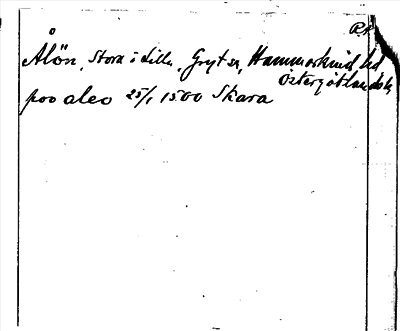 R.A.
Ålön, Stora i Lilla, Gryt sn, Hammarkind hd
Östergötlands l.
poo aleo 25/1 1500 Skara